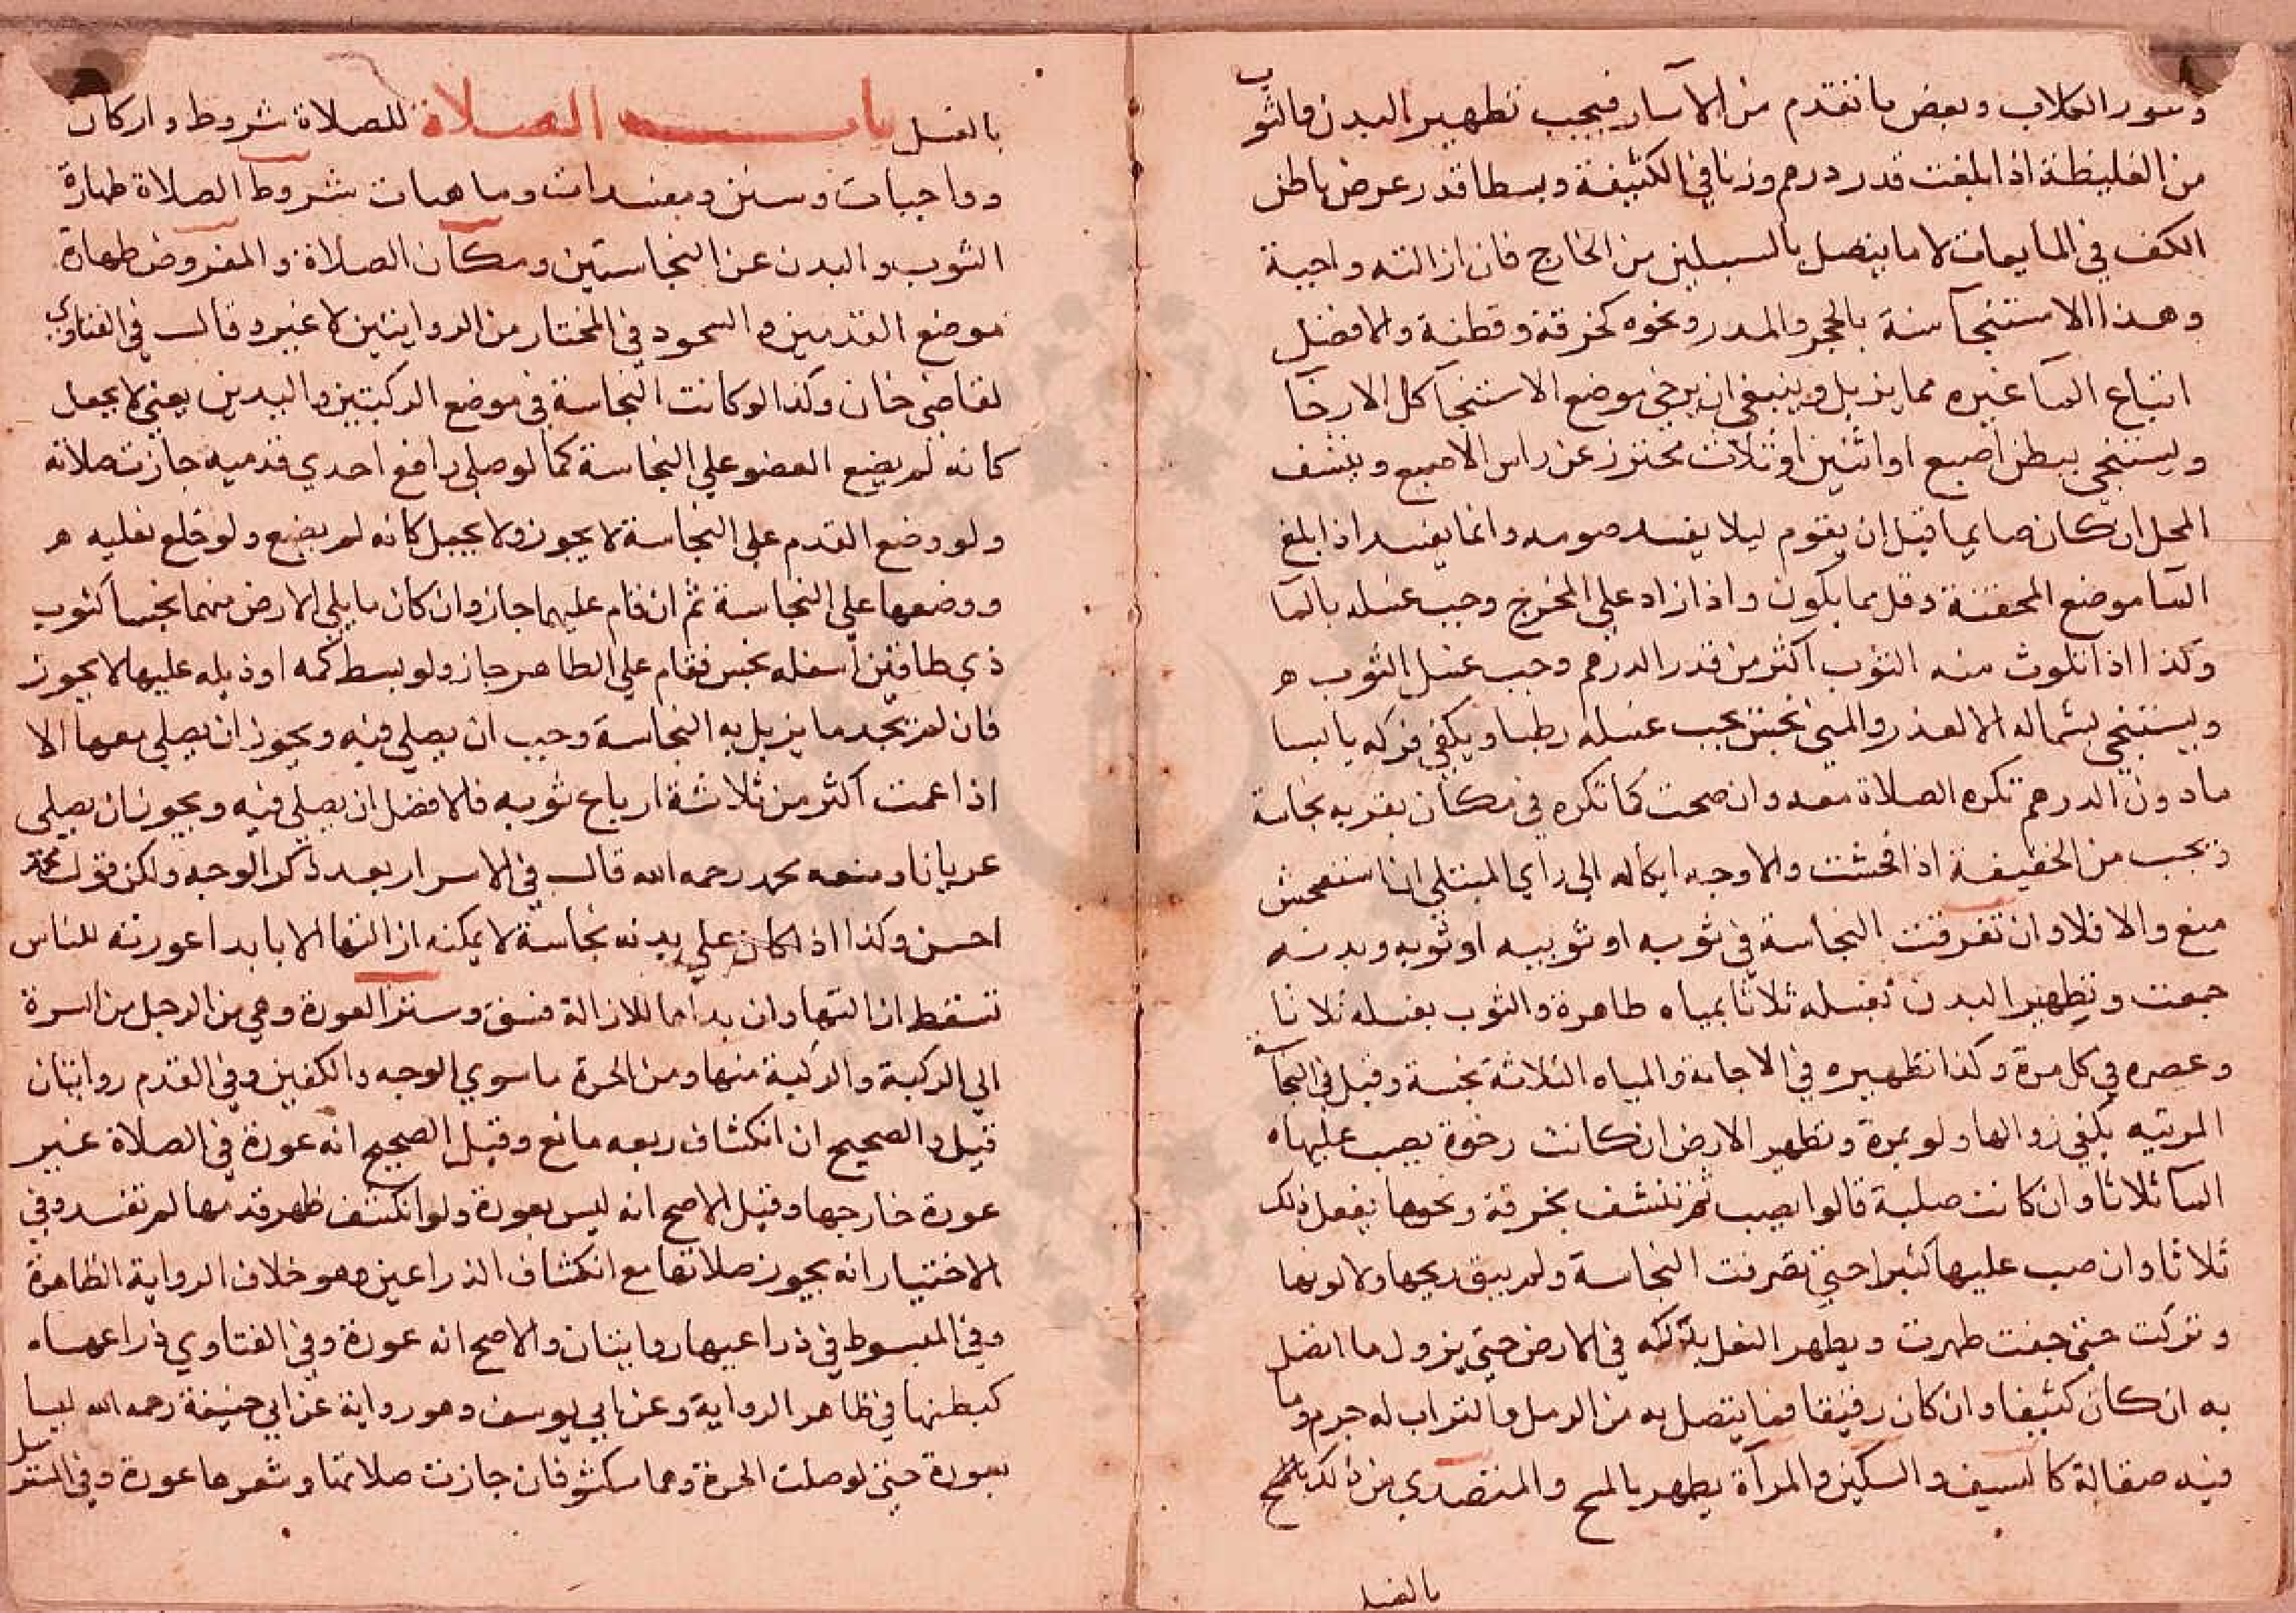 وسور الكلاب وبعض ما تقدم من الآسار فيجب تطهير البدن والثوب
من الغليظة اذا بلغت قدر درهم وزنا في الكثيفة وبسطا قدر عرض باطن
الكف في المايعات لا ما يتصل بالسبيلين من الخارج فان ازالته واجبة
وهذا الاستنجآ سنة بالحجر والمدر ونحوه كخرقة وقطنة والافضل
اتباع المآ غيره مما يزيل وينبغي ان يرخي موضع الاستنجآ كل الارخآ
ويستنجي ببطن اصبع او اثنين او ثلاث محترز عن راس الاصبع وينشف
المحل ان كان صايما قبل ان يقوم ليلا يفسد صومه وانما يفسد اذا بلغ
المآ موضع المحقنة وقل ما يكون واذا زاد علي المخرج وجب غسله بالمآ
وكذا اذا تلوث منه الثوب اكثر من قدر الدرهم وجب غسل الثوب ه
ويستنجي بشماله الا لعذر والمني نجس يجب غسله رطبا ويكفي فركه يابسا
مادون الدرهم تكره الصلاة معه وان صحت كما تكره في مكان بقربه نجاسة
ويجب من الخفيفة اذا فحشت والاوجه ايكاله الي راي المبتلي ان استفحش
منع والا فلا وان تفرقت النجاسة في ثوبه او ثوبيه او ثوبه وبدنه
جمعت وتطهير البدن بغسله ثلاثا بمياه طاهرة والثوب بغسله ثلاثا
وعصره في كل مرة وكذا تطهيره في الاجانة والمياه الثلاثة نجسة وقيل في النجآسة
المرئيه يكفي زوالها ولو بمرة وتطهر الارض ان كانت رخوة بصب عليها ه
المآ ثلاثا وان كانت صلبة قالوا يصب ثم تنشف بخرقة ونحوها يفعل ذلك
ثلاثا وان صب عليها كثيرا حتي تفرقت النجاسة ولم يبق ريحها ولا لونها
وتركت حتي جفت طهرت ويطهر النعل بدلكه في الارض حتي يزول ما اتصل
به ان كان كثيفا وان كان رقيقا فما يتصل به من الرمل والتراب له جرم وما
فيه صقالة كالسيف والسكين والمرآة يطهر بالمسح والمتصدي من ذلك
بالغسل
بالغسل باب الصلاة للصلاة شروط واركان
وواجبات وسنن ومفسدات وماهيات شروط الصلاة طهارة
الثوب والبدن عن النجاستين ومكان الصلاة والمفروض طهارة
موضع القدمين والسجود في المختار من الروايتين لا غير وقال في الفتاوي
لقاضي خان وكذا لو كانت النجاسة في موضع الركبتين واليدين يعني لا يجعل
كانه لم يضع العضو علي النجاسة كما لو صلي رافع احدي قدميه جازت صلاته
ولو وضع القدم علي النجاسة لا يجوز ولا يجعل كانه لم يضع ولو خلع نعليه ه
ووضعها علي النجاسة ثم ان قام عليهما جاز وان كان ما يلي الارض منهما نجسا كثوب
ذي طاقين اسفله نجس فقام علي الطاهر جاز ولو بسط كمه او ذيله عليها لا يجوز
فان لم يجد ما يزيل به النجاسة وجب ان يصلي فيه ويجوز ان يصلي معها الا
اذا عمت اكثر من ثلاثة ارباع ثوبه فالافضل ان يصلي فيه ويجوز ان يصلي
عريانا ومنعه محمد رحمه الله قال في الاسرار بعد ذكر الوجه ولكن قول محمد
احسن وكذا اذا كان علي بدنه نجاسة لا يمكنه ازالتها الا بابدا عورته للناس
تسقط ازالتها وان بداها للازالة فسق وستر العورة وهي من الرجل من السرة
الي الركبة والركبة منها ومن الحرة ما سوي الوجه والكفين وفي القدم روايتان
قيل والصحيح ان انكشاف ربعه مانع وقيل الصحيح انه عورة في الصلاة غير
عورة خارجها وقيل الاصح انه ليس بعورة ولو انكشف ظهر قدمها لم تفسد وفي
الاختيار انه يجوز صلاتها مع انكشاف الذراعين وهو خلاف الرواية الظاهرة
وفي المبسوط في ذراعيها روايتان والاصح انه عورة وفي الفتاوي ذراعها ه
كبطنها في ظاهر الرواية وعن ابي يوسف وهو رواية عن ابي حنيفة رحمه الله ليسا
بعورة حتي لو صلت الحرة وهما مكشوفان جازت صلاتها وشعرها عورة وفي المسترسل